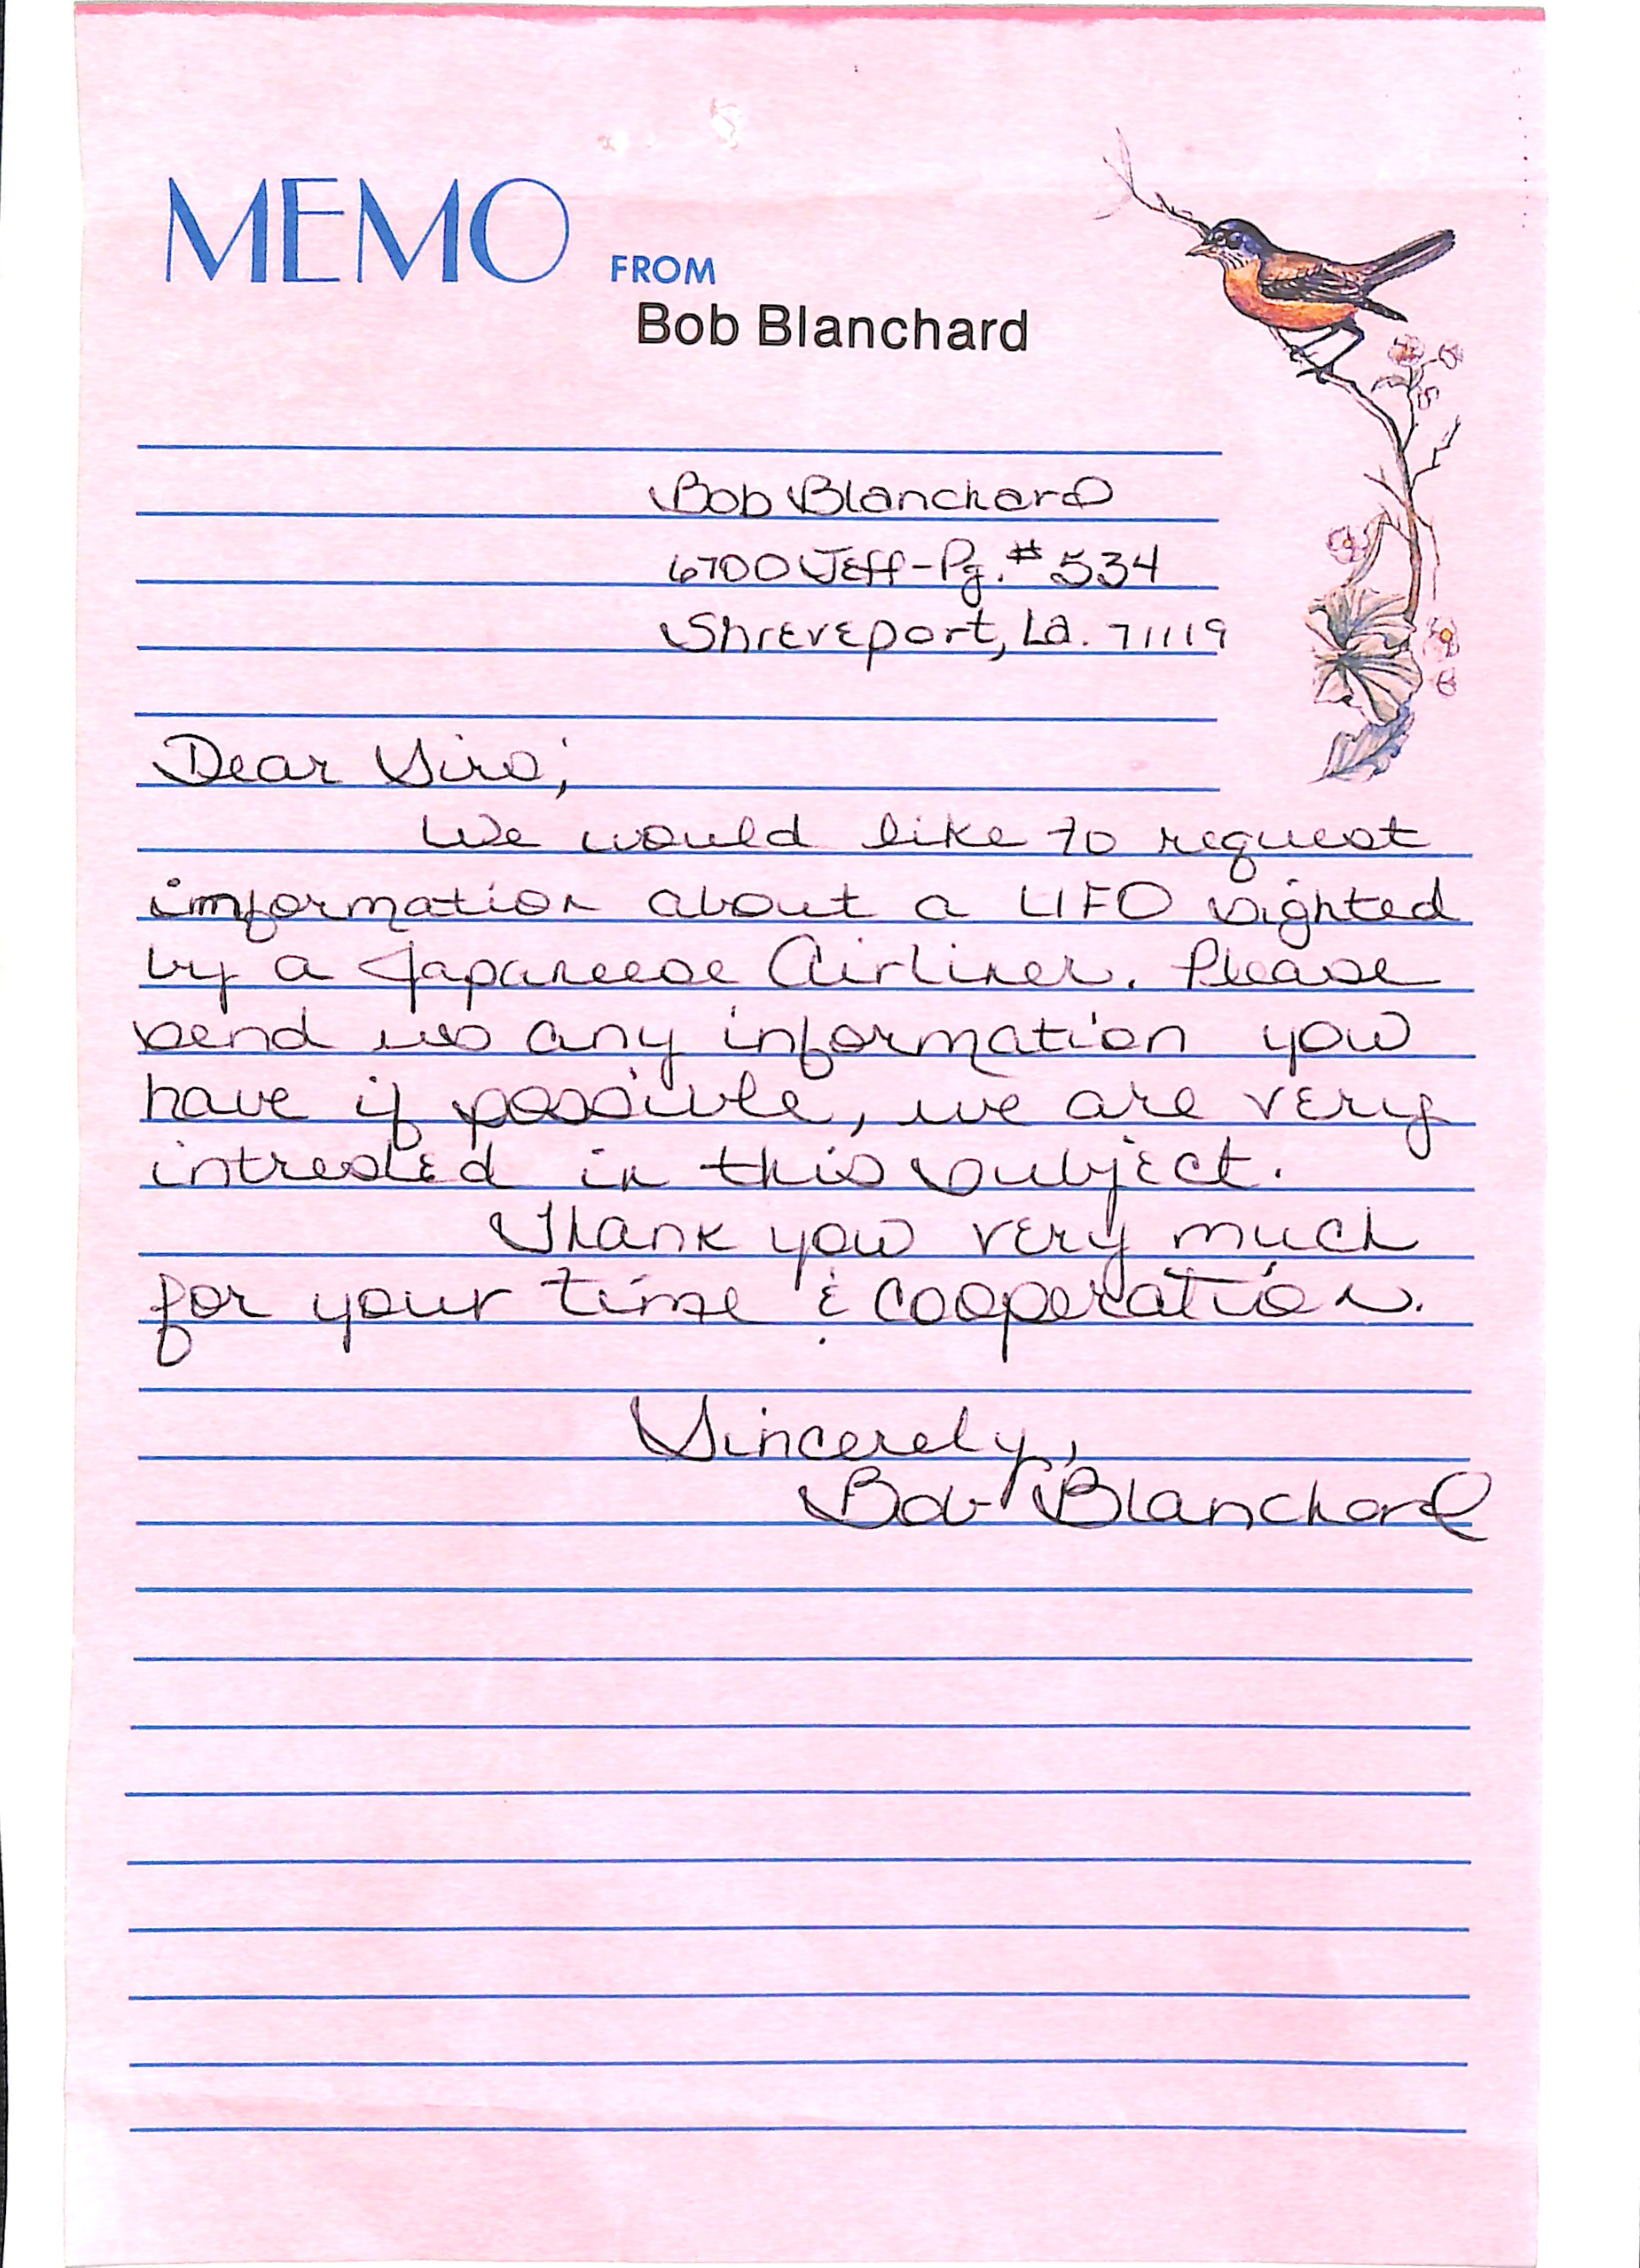 MEMO FROM
Bob Blanchard
Bob Blanchard
6700 Jeff-Pg. # 534
Shreveport, La. 71119
Dear Sirs;
We would like to request
information about a UFO sighted
by a Japaneese Airliner. Please
send us any information you
have if possible, we are very
intrested in this subject.
Thank you very much
for your time & cooperation.
Sincerely,
Bob Blanchard